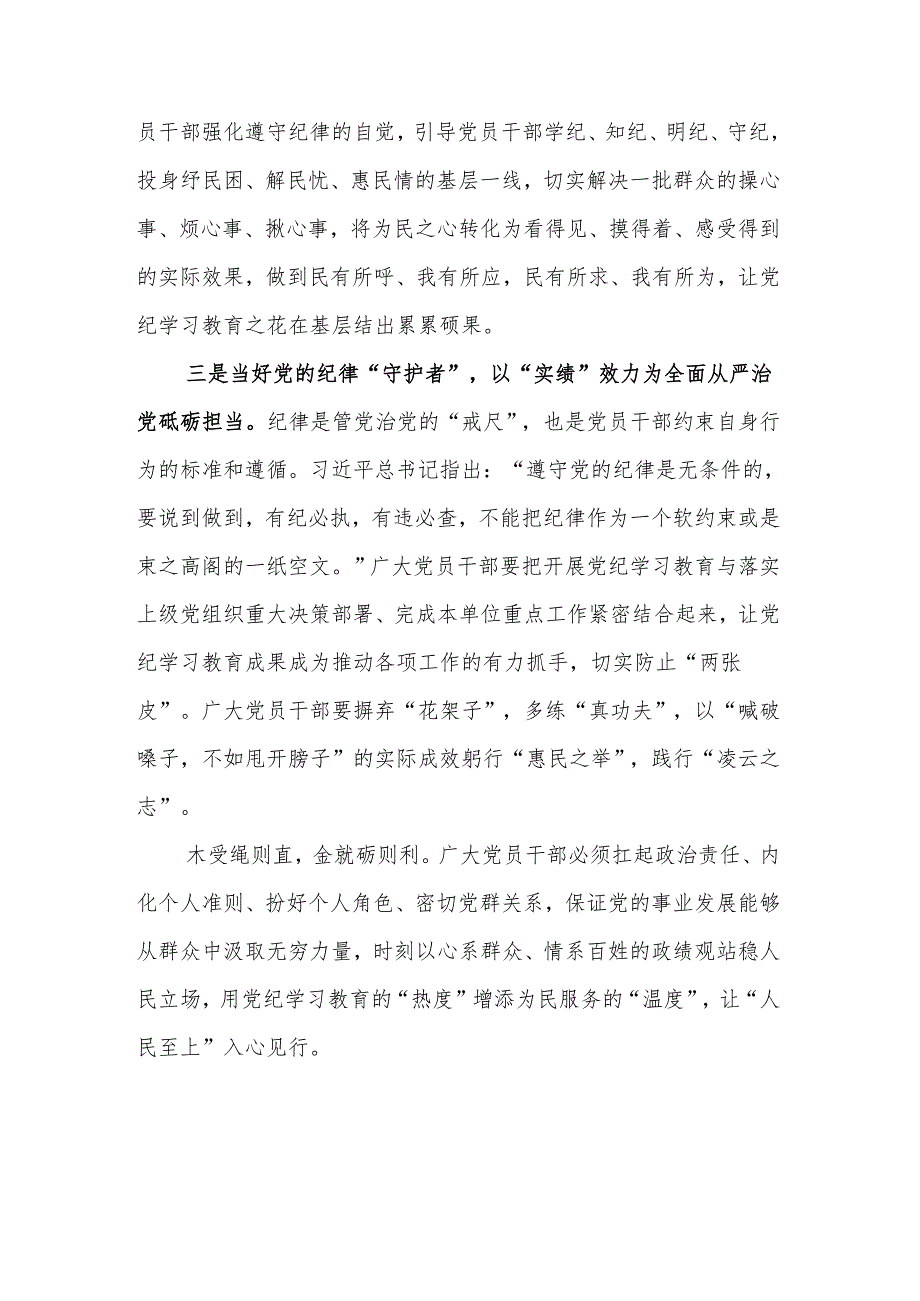 员干部强化遵守纪律的自觉，引导党员干部学纪、知纪、明纪、守纪，
投身纾民困、解民忧、惠民情的基层一线，切实解决一批群众的操心
事、烦心事、揪心事，将为民之心转化为看得见、摸得着、感受得到
的实际效果，做到民有所呼、我有所应，民有所求、我有所为，让党
纪学习教育之花在基层结出累累硕果。
三是当好党的纪律“守护者”，以“实绩”效力为全面从严治
党砥砺担当。纪律是管党治党的“戒尺”，也是党员干部约束自身行
为的标准和遵循。习近平总书记指出：“遵守党的纪律是无条件的，
要说到做到，有纪必执，有违必查，不能把纪律作为一个软约束或是
束之高阁的一纸空文。”广大党员干部要把开展党纪学习教育与落实
上级党组织重大决策部署、完成本单位重点工作紧密结合起来，让党
纪学习教育成果成为推动各项工作的有力抓手，切实防止“两张
皮”。广大党员干部要摒弃“花架子”，多练“真功夫”，以“喊破
嗓子，不如甩开膀子”的实际成效躬行“惠民之举”，践行“凌云之
志”。
木受绳则直，金就砺则利。广大党员干部必须扛起政治责任、内
化个人准则、扮好个人角色、密切党群关系，保证党的事业发展能够
从群众中汲取无穷力量，时刻以心系群众、情系百姓的政绩观站稳人
民立场，用党纪学习教育的“热度”增添为民服务的“温度”，让“人
民至上”入心见行。